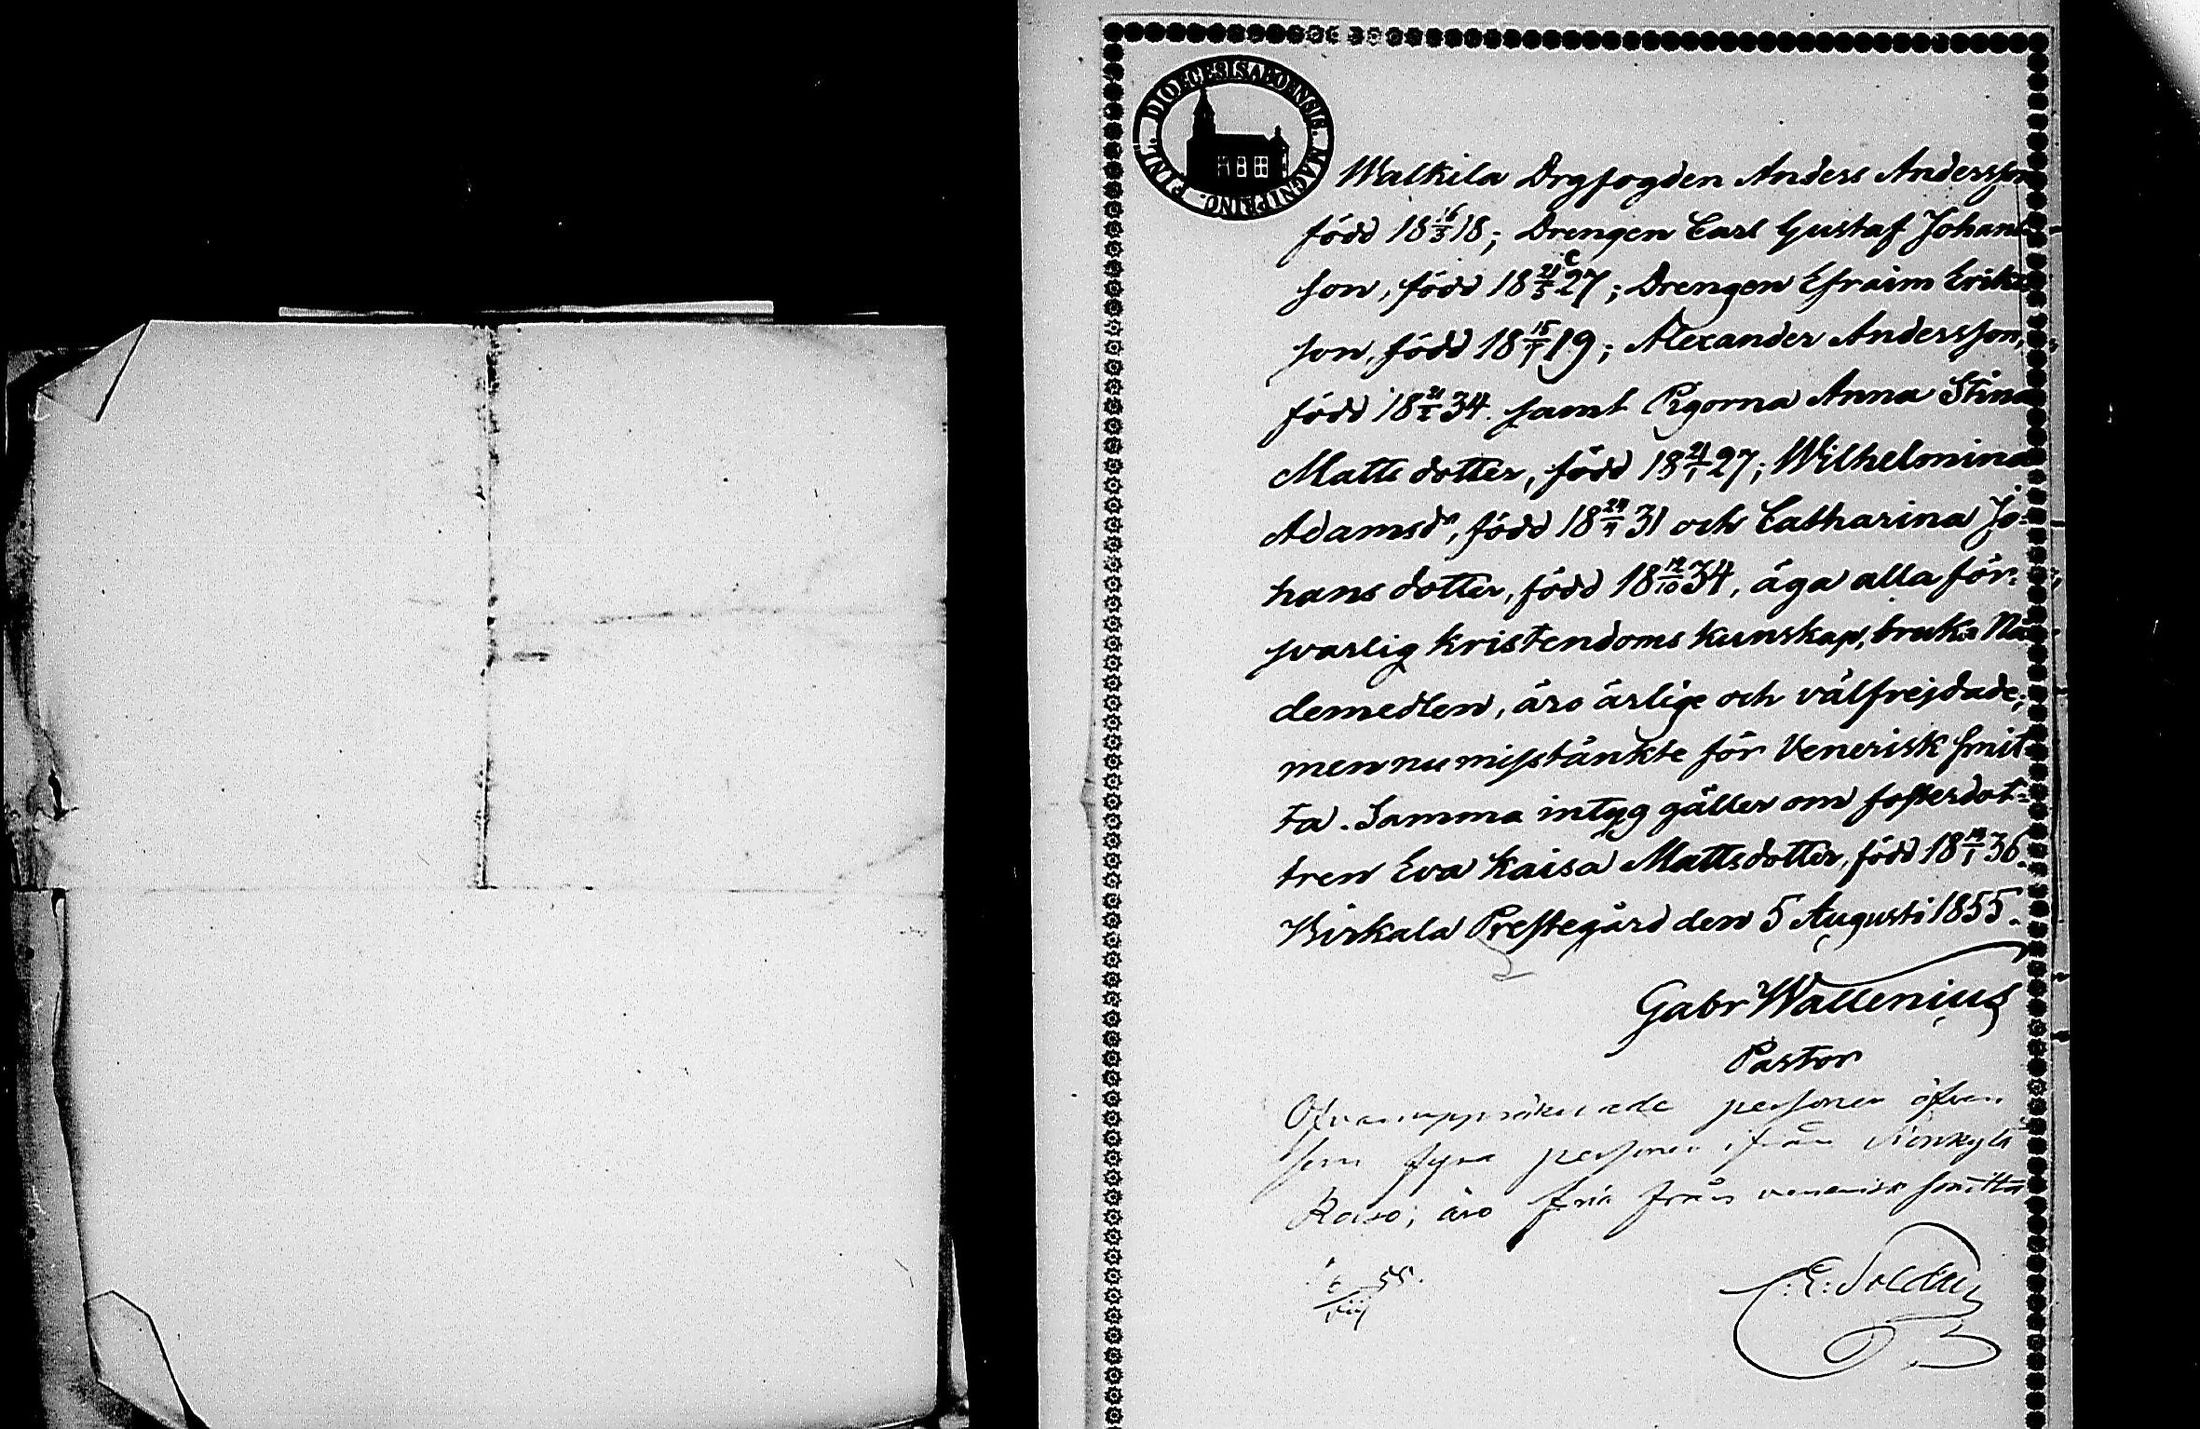 DIOECESIS ABOENSIS. MAGNI PRINC. FINL.
Walkila Drgfogden Anders Andersson
född 18 16/3 18; Drengen Carl Gustaf Johans
son, född 18 21/3 27; Drengen Efraim Eriks
son, född 18 15/7 19; Alexander Andersson,
född 18 21/2 34. samt Pigorna Anna Stina
Mattsdotter, född 18 21/1 27; Wilhelmina
Adamsdr, född 18 29/9 31 och Catharina Jo-
hansdotter, född 18 12/10 34, äga alla för-
svarlig kristendoms kunskap, bruka Nå
demedlen, äro ärlige och välfrejdade,
men nu misstänkte för Venerisk smit
ta. Samma intyg gäller om fosterdot-
tren Eva Kaisa Mattsdotter, född 18 19/1 36.
Birkala Prestegård den 5 Augusti 1855.
Gabr Wallenius
Pastor
Ofvanuppräknade personer äfven
som fyra personer ifrån
äro fria från venerisk smitta
55.